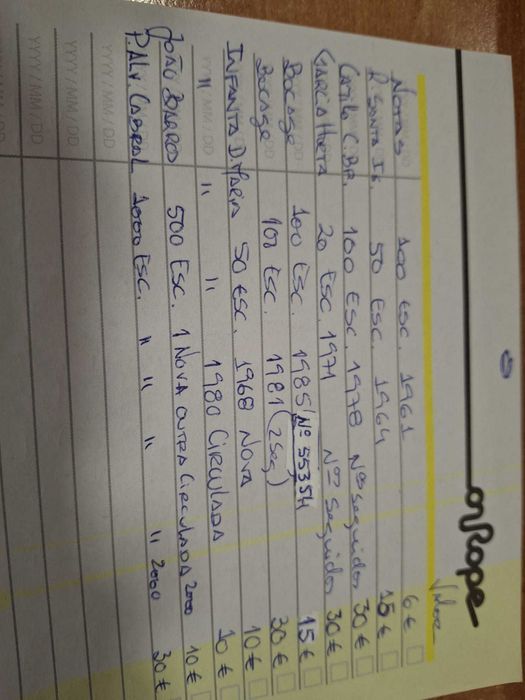 on Rope
Valor
Notas 100 ESC. 1961 6€
R. Santa Is. 50 ESC. 1964 15€
Camilo C. BR. 100 ESC. 1978 Nos seguidos 30€
GARCIA Horta 20 ESC. 1971 Nos seguidos 30€
Bocage 100 ESC. 1985 Nº 55354 15€
Bocage 100 ESC. 1981 (2 seg) 30€
INFANTA D. MARIA 50 ESC. 1968 NOVA 10€
" " " 1980 CIRCULADA 10€
JOÃO BARROS 500 ESC. 1 NOVA OUTRA CIRCULADA 2000 10€
P. ALV. CABRAL 1000 ESC. " " " " 2000 30€
YYYY/MM/DD
YYYY/MM/DD
YYYY/MM/DD